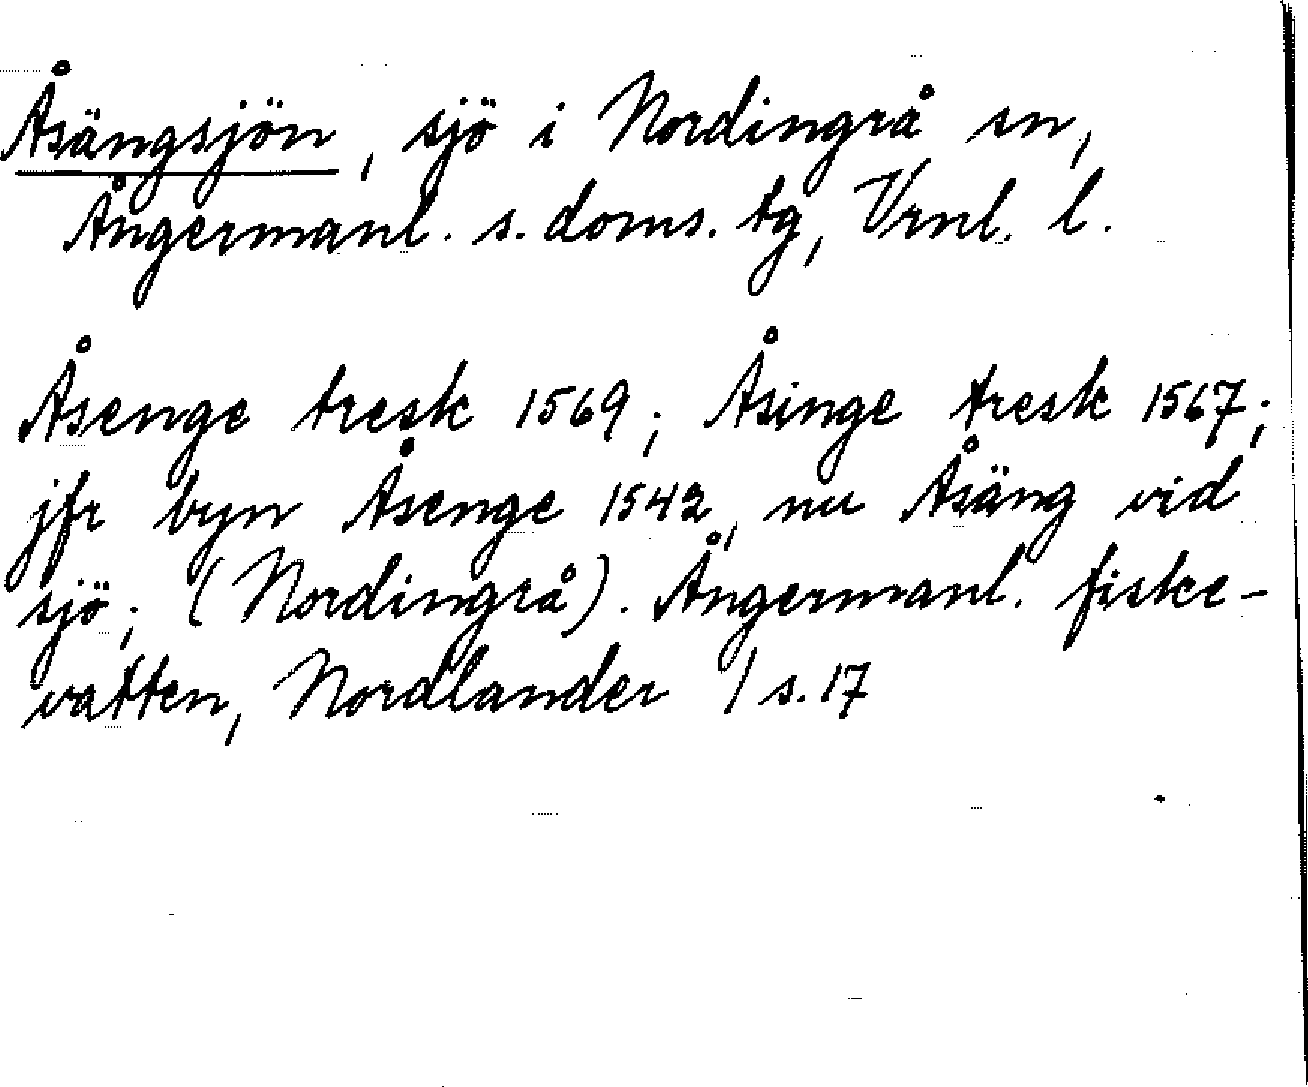 Åsängsjön, sjö i Nordingrå sn,
Ångermanl. s. doms. tg, Vrnl. l.
Åsenge tresk 1569; Åsinge tresk 1567;
jfr byn Åsenge 1542, nu Åsäng vid
sjö; (Nordingrå). Ångermanl. fiske-
vatten, Nordlander / s. 17